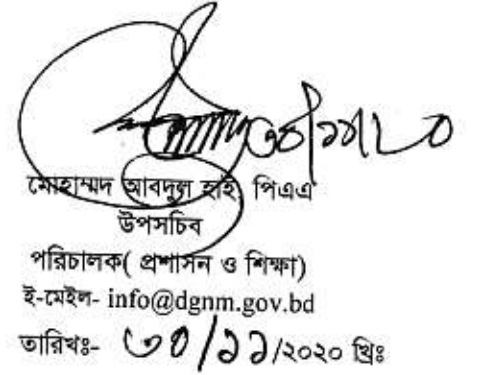 ৩০/১১/২০
মোহাম্মদ আবদুল হাই, পিএএ
উপসচিব
পরিচালক( প্রশাসন ও শিক্ষা)
ই-মেইল- info@dgnm.gov.bd
তারিখঃ- ৩০/১১/২০২০ খ্রিঃ